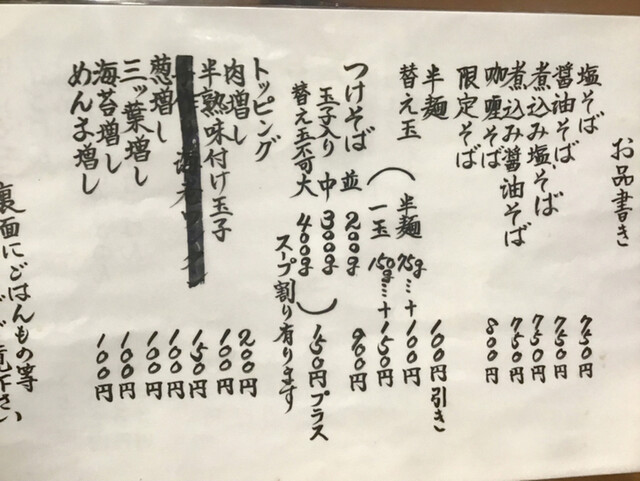 お品書き
塩そば 750円
醤油そば 750円
煮込み塩そば 750円
煮込み醤油そば 750円
咖喱そば 800円
限定そば
半麺 100円引き
替え玉（半麺 75g…+100円
一玉 150g…+150円
つけそば 並 200g 900円
玉子入り 中 300g
替え玉不可 大 400g）150円プラス
スープ割り有ります
トッピング
肉増し 200円
半熟味付け玉子 100円
150円
葱増し 100円
三ッ葉増し 100円
海苔増し 100円
めんま増し 100円
裏面にごはんもの等